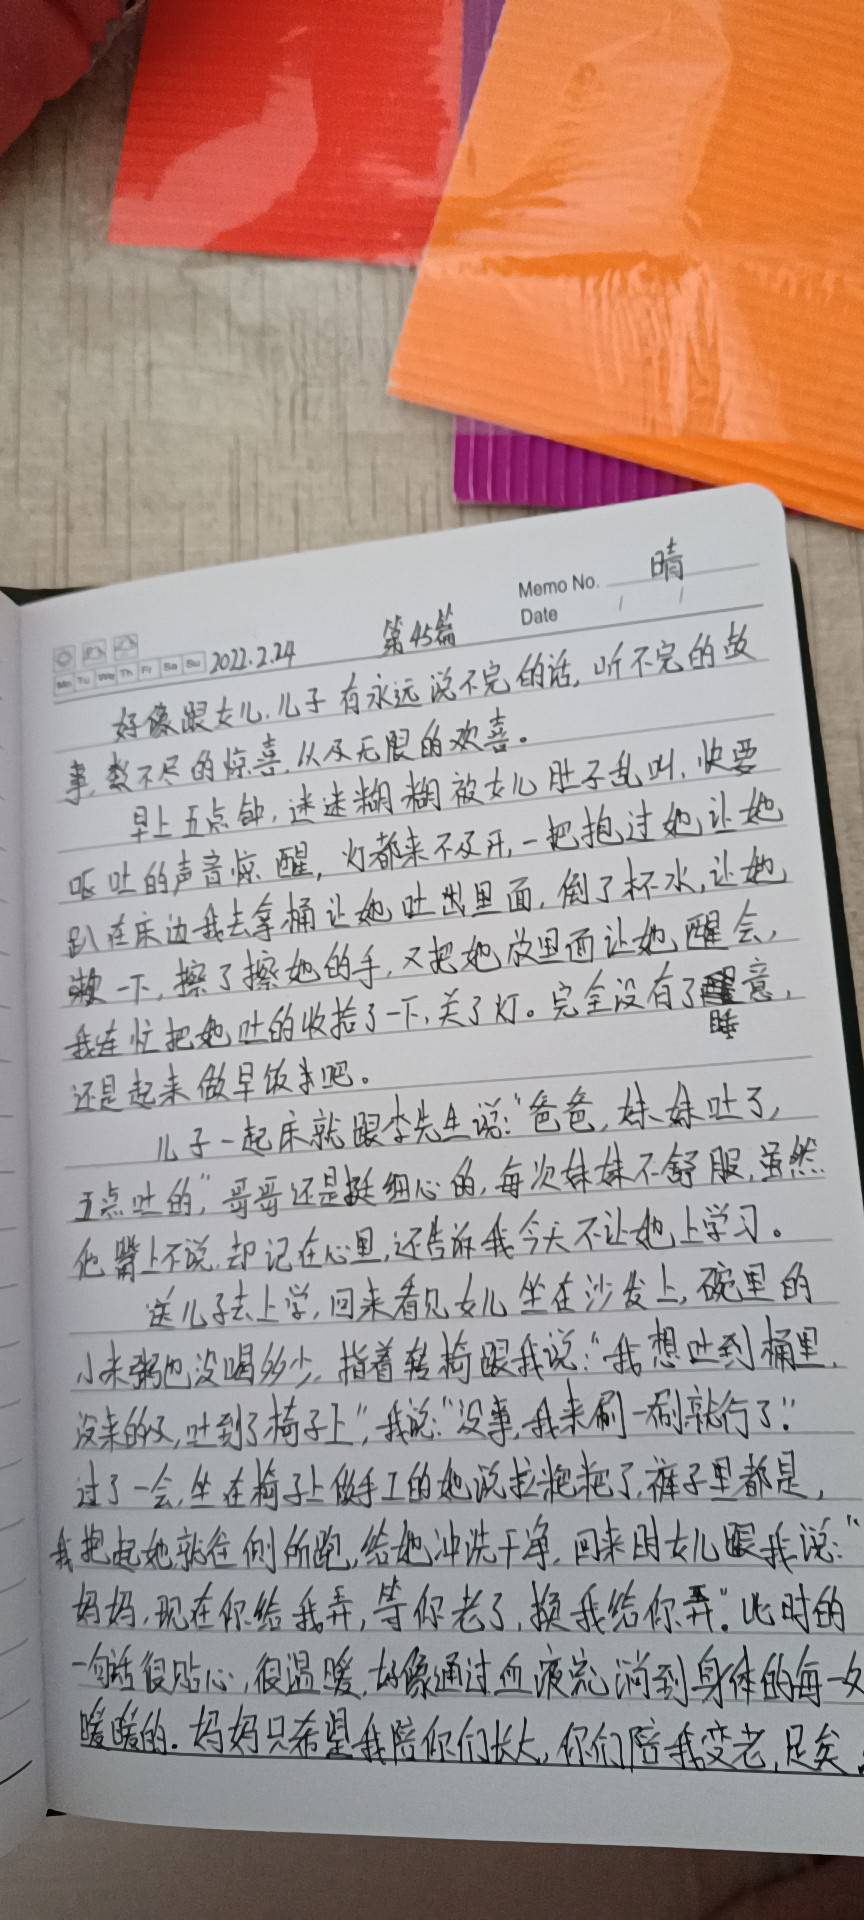 Memo No. 晴
Date / /
Mo Tu We Th Fr Sa Su 2022.2.24 第45篇
好像跟女儿、儿子有永远说不完的话,听不完的故
事,数不尽的惊喜,从及无限的欢喜。
早上五点钟,迷迷糊糊被女儿肚子乱叫,快要
呕吐的声音惊醒,灯都来不及开,一把抱过她让她
趴在床边我去拿桶让她吐出里面,倒了杯水,让她
漱一下,擦了擦她的手,又把她放里面让她醒会,
我连忙把她吐的收拾了一下,关了灯。完全没有了睡意,
还是起来做早饭吧。
儿子一起床就跟李先生说:“爸爸,妹妹吐了,
五点吐的,”哥哥还是挺细心的,每次妹妹不舒服,虽然
他嘴上不说,却记在心里,还告诉我今天不让她上学习。
送儿子去上学,回来看见女儿坐在沙发上,碗里的
小米粥也没喝多少,指着转椅跟我说:“我想吐到桶里,
没来的及,吐到了椅子上”,我说:“没事,我来刷一刷就行了.”
过了一会,坐在椅子上做手工的她说拉粑粑了,裤子里都是,
我抱起她就往侧所跑,给她冲洗干净,回来时女儿跟我说:“
妈妈,现在你给我弄,等你老了,换我给你弄”.此时的
一句话很贴心,很温暖,好像通过血液流淌到身体的每一处
暖暖的.妈妈只希望我陪你们长大,你们陪我变老,足矣。